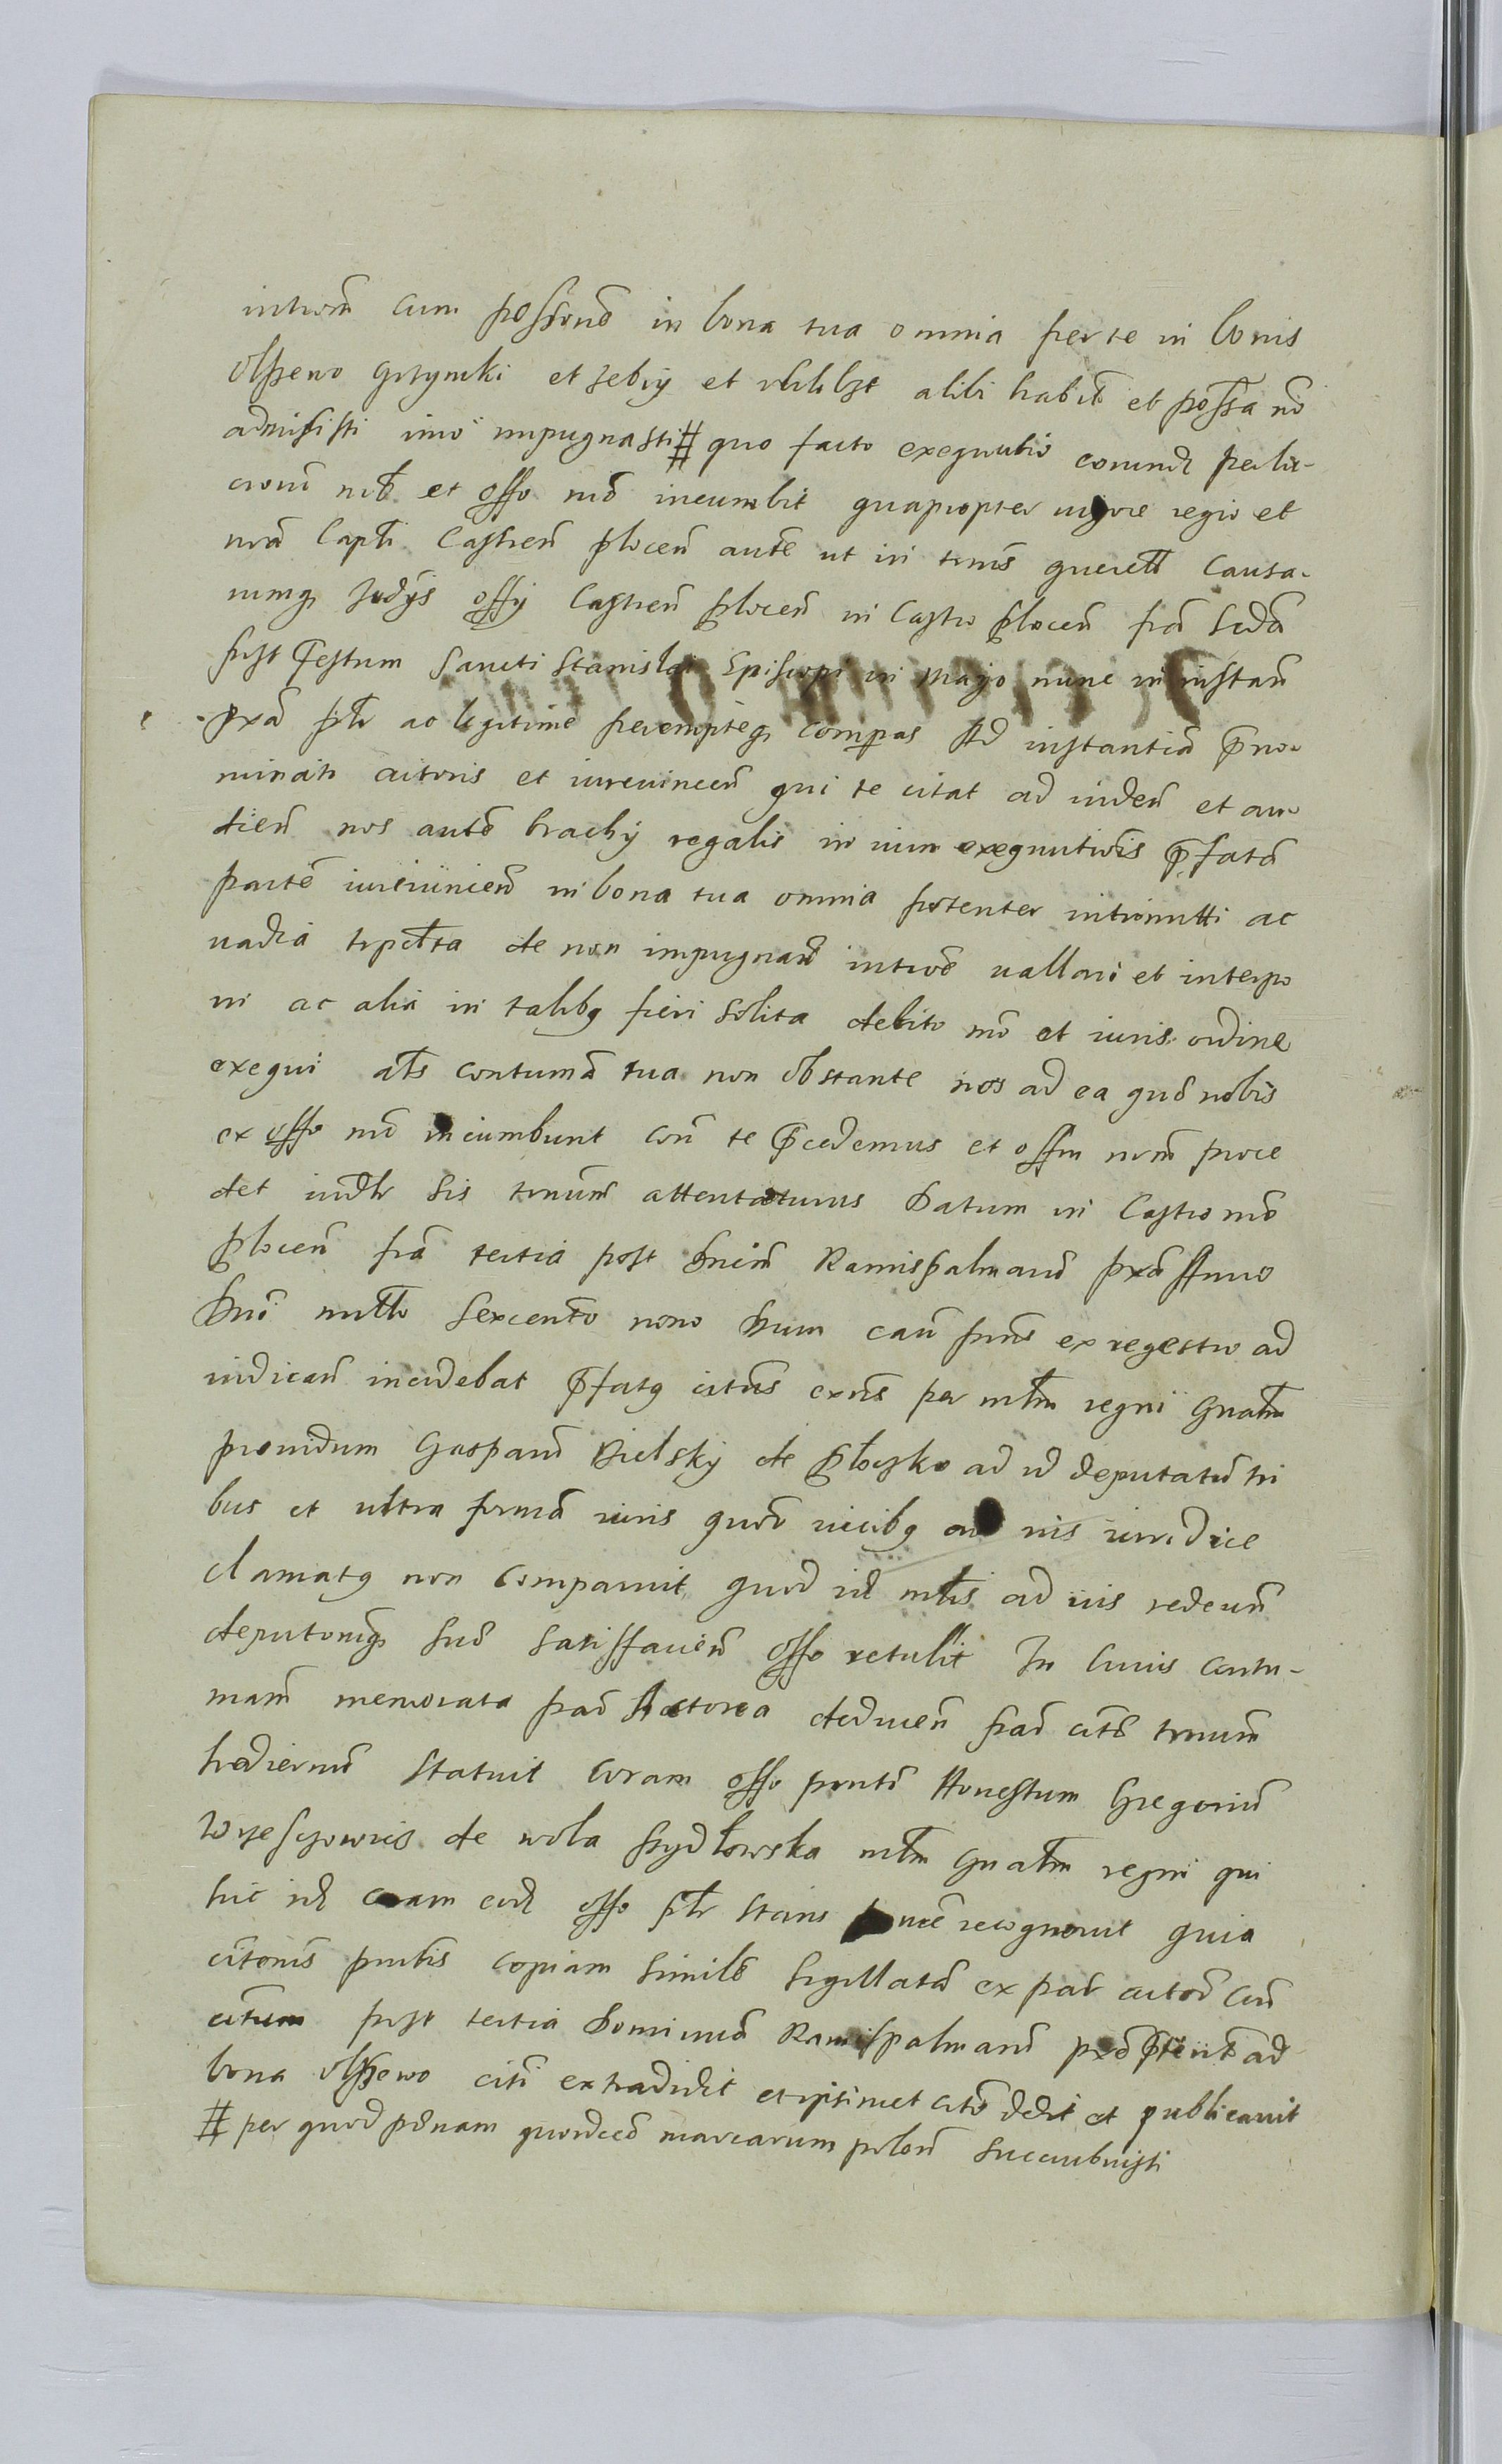 introm̃ cum possionẽ in bona tua omnia per te in bonis
Olszewo Grzymki et Zebry et ubilibet alibi habit̃ et possa nõ
admisisti imo impugnasti # quo facto exequutio eorund̃ perlu-
crorũ nrõ et offo nrõ incumbit quapropter vigore regio et
nrã Capti Castreñ plocen autẽ ut in tmis querell causa-
rumq̃ Judijs offij Castreñ plocen in Castro plocen friã sc̃da
post festum Sancti Stanislai Episcopi in Majo nunc in instan̄
prxã psltr ac legitime peremptẽq̃ compas Ad instantiã p̃no-
minati actoris et iurevinceñ qui te citat ad viden̄ et au-
dien̄ nos autẽ brachij regalis in vim exequutiõis p̃fatã
partẽ iurevinceñ in bona tua omnia potenter intromitti ac
vadia de non impugnan̄ introẽ vallari et interpo
ni ac alia in talibq fieri solita debito mõ et iuris ordine
exequi als contumã tua non obstante nos ad ea quẽ nobis
ex offo nrõ incumbunt coñ te p̃cedemus et offm nrm̃ proce
det indltr sis tmum̃ attentaturus Datum in Castro nrõ
plocen friã tertia post Dnicã Ramispalmarũ prxã Anno
Dni millo sexcento nono Dum cauã pñs ex regestro ad
iudican̄ incidebat p̃fatq citũs exñs per mlm̃ regni Gnalm̃
providum Gasparũ Bielsky de plocko ad id deputatũ tri
bus et ultra formã iuris quãr vicibq ad iuridice
clamatq non comparuit quod id̃ mlis ad iis redeun̄
deputoniq̃ suẽ satisfacien̄ offo retulit In Cuius contu-
mam̃ memorata pars Actorea deducen̄ citõ tmum̃
hodiernũ statuit coram offo pñti Honestum Gregoriũ
de wola szydlowska mlm̃ Gnalm̃ regni qui
hic id̃ coram eod̃ offo psltr stans recognovit quia
citonis pñtis copiam similẽ sigillatã ex par actor̃ Coñ
citum post tertia Dominicã Ramispalmarũ prxã p̃terit̃ ad
bona Olszewo citi extradidit et ipsimet citõ dedit et publicavit
# per quod pẽnam quordecẽ marcarum polon̄ succubuisti